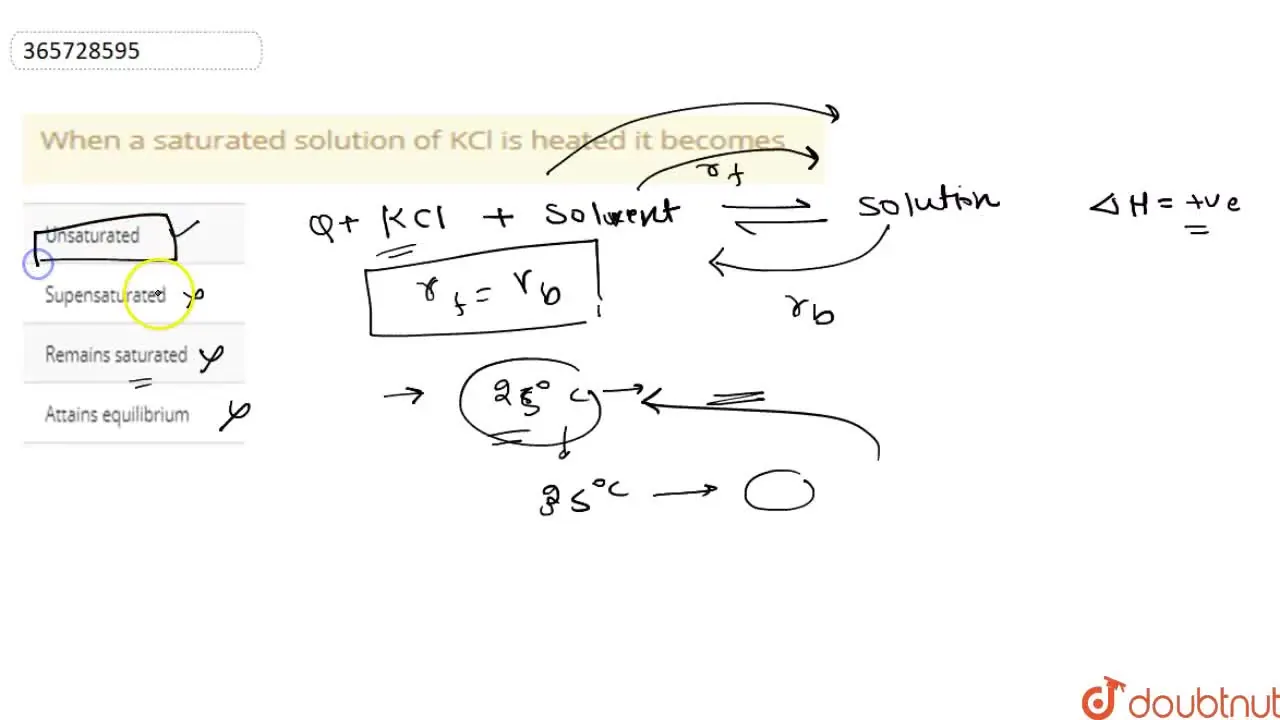 365728595
When a saturated solution of KCl is heated it becomes
Unsaturated
Supensaturated
Remains saturated
Attains equilibrium
Q + KCl + Solvent ⇌ Solution ΔH = +ve
r_f
r_f = r_b
r_b
→ 25°C →
35°C →
doubtnut